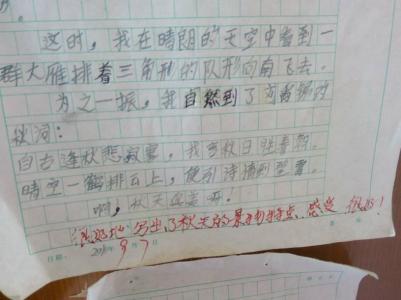 这时，我在晴朗的天空中看到一
群大雁排着三角形的队形向南飞去。
为之一振，我自然到了刘禹锡的
秋词：
自古逢秋悲寂寥，我言秋日胜春朝。
晴空一鹤排云上，便引诗情到碧霄。
啊，秋天
写出了秋天的景物特点 感受 很好！
日期： 9月7